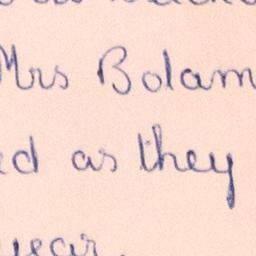 Mrs Bolam
ed as they
year.